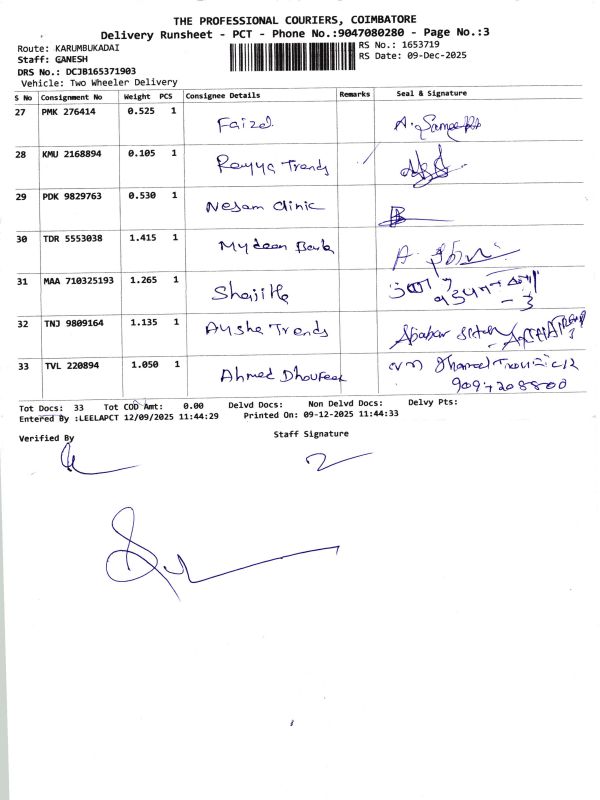 THE PROFESSIONAL COURIERS, COIMBATORE
Delivery Runsheet - PCT - Phone No.:9047080280 - Page No.:3
Route: KARUMBUKADAI
RS No.: 1653719
Staff: GANESH
RS Date: 09-Dec-2025
DRS No.: DCJB165371903
Vehicle: Two Wheeler Delivery
S No Consignment No Weight PCS Consignee Details Remarks Seal & Signature
27 PMK 276414 0.525 1 Faizal
28 KMU 2168894 0.105 1 Rayya Trends
29 PDK 9829763 0.530 1 Nesam Clinic
30 TDR 5553038 1.415 1 Mydeen Bank A.
31 MAA 710325193 1.265 1
32 TNJ 9809164 1.135 1 Aysha Trends
33 TVL 220894 1.050 1 Ahmed Dhoufeek
Tot Docs: 33 Tot COD Amt: 0.00 Delvd Docs: Non Delvd Docs: Delvy Pts:
Entered By :LEELAPCT 12/09/2025 11:44:29 Printed On: 09-12-2025 11:44:33
Verified By
Staff Signature